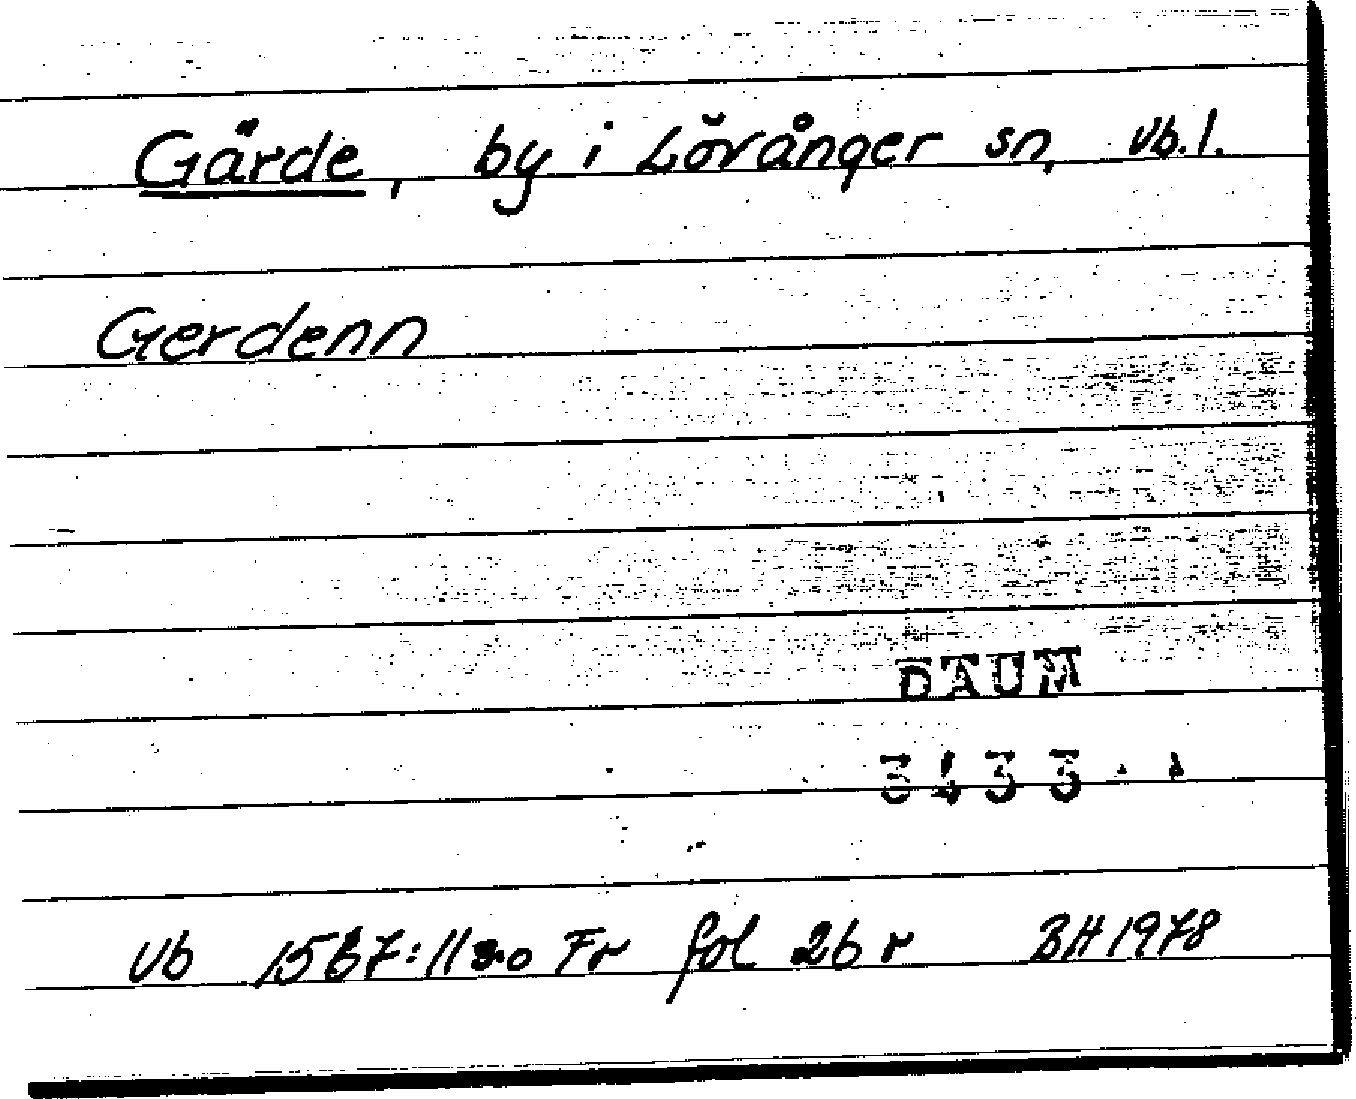 Gärde, by i Lövånger sn, Vb.l.
Gerdenn
DAUM
3433
Vb 1567:11 Fr fol 26 r BH 1978